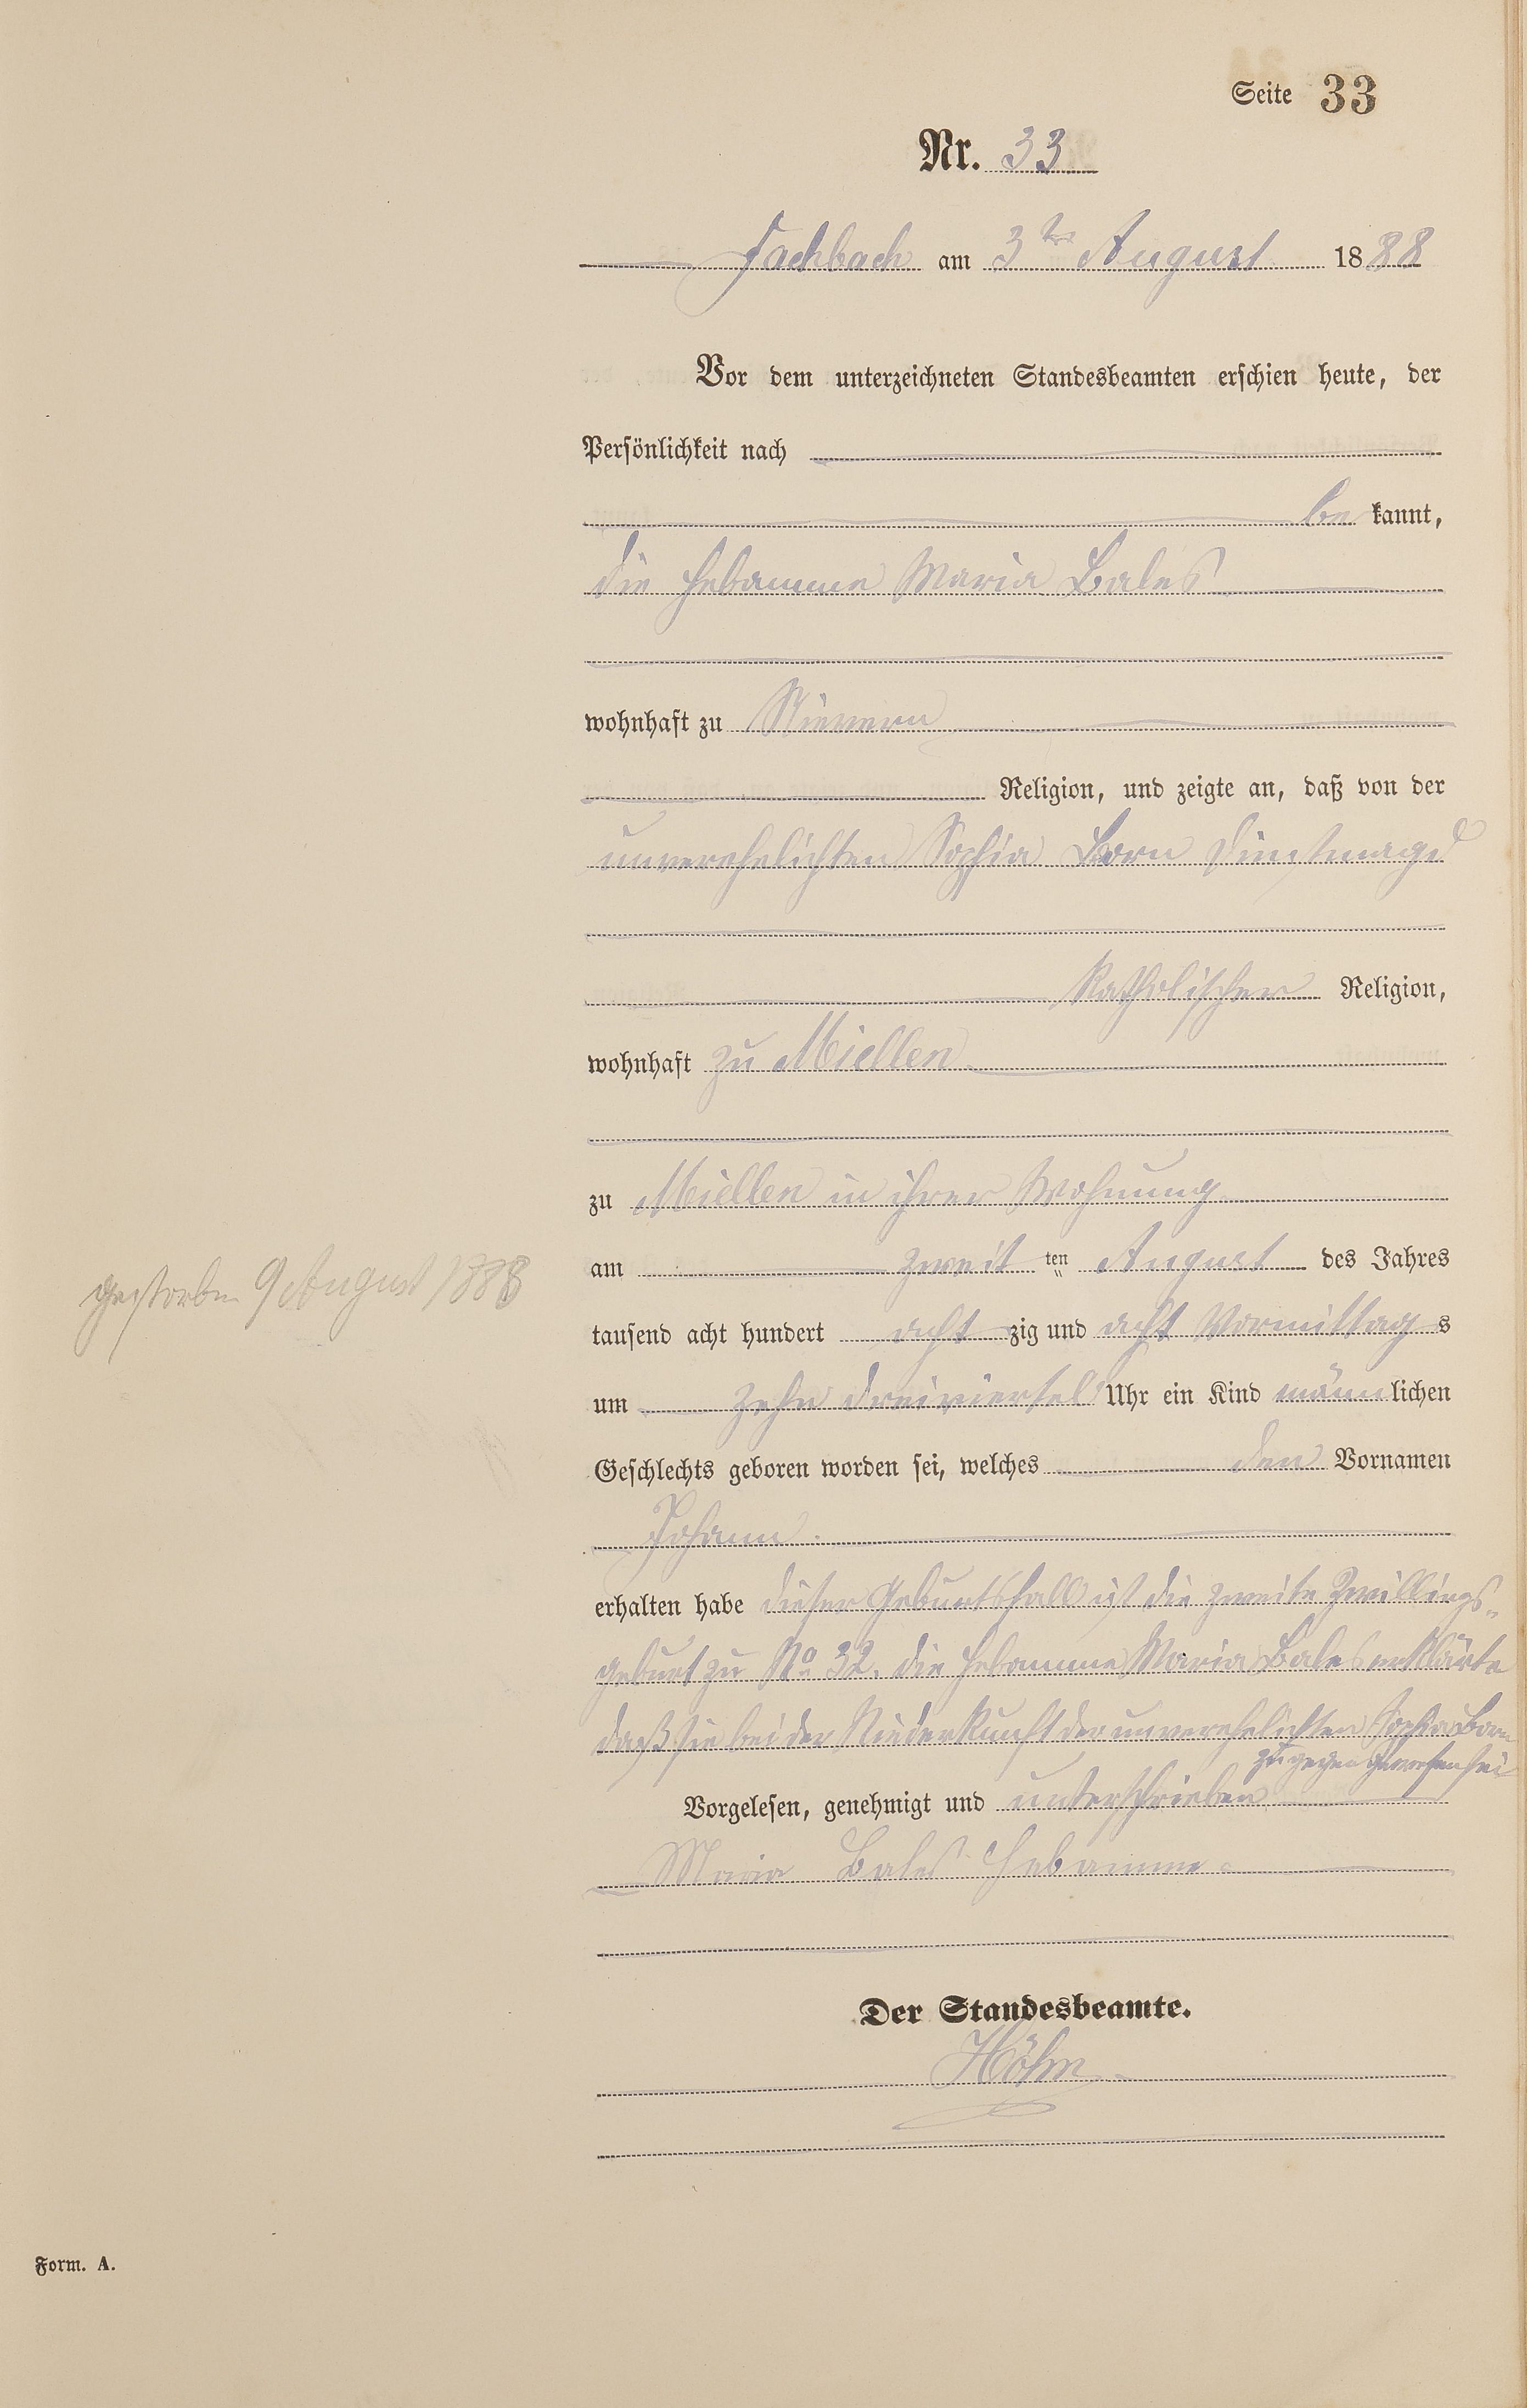 Seite 33
Nr. 33
Fachbach am 3ten August 1888
Vor dem unterzeichneten Standesbeamten erschien heute, der
Persönlichkeit nach
be kannt,
die Hebamme Maria Bales
wohnhaft zu Nievern
Religion, und zeigte an, daß von der
unverehelichten Sophia Born Dienstmagd
Katholischer Religion,
wohnhaft zu Miellen
zu Miellen in ihrer Wohnung
am zweit ten August des Jahres
gestorben 9 August 1888
tausend acht hundert acht zig und acht Vormittag s
um zehn dreiviertel Uhr ein Kind männlichen
Geschlechts geboren worden sei, welches den Vornamen
Johann.
erhalten habe dieser Geburtsfall ist die zweite Zwillings-
geburt zu No 32. die Hebamme Maria Bales erklärte
daß sie bei der Niederkunft der unverehelichten Sophia Born
zugegen gewesen sei
Vorgelesen, genehmigt und unterschrieben
Maria Bales Hebamme
Der Standesbeamte.
Höhn
Form. A.